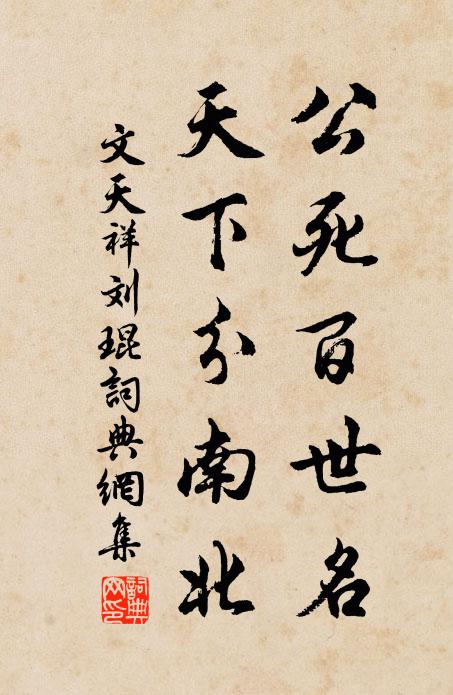 公死百世名
天下分南北
文天祥刘琨詞典網集
詞典网印